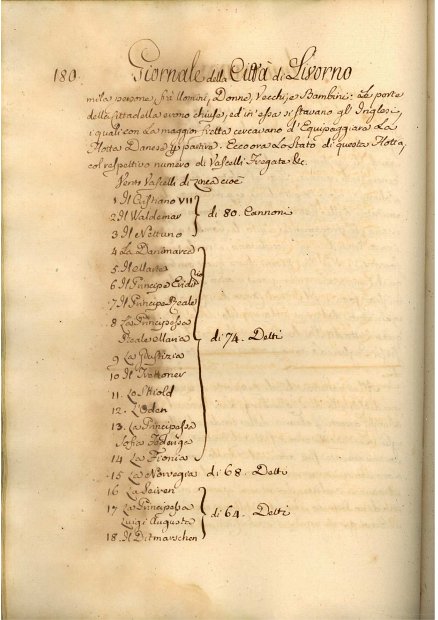 180. Giornale della Città di Livorno
mila persone, frà Uomini, Donne, Vecchj, e Bambini: Le porte
della Cittadella erono chiuse, ed in essa vi stavano gl'Inglesi,
i quali con la maggior fretta cercavano d'Equipaggiare La
Flotta Danese p partire. Ecco ora Lo Stato di questa Flotta,
col respettivo numero di Vascelli Fregata &c.
Venti Vascelli di Linea cioè
1 Il Cristiano VII
2 Il Waldemar } di 80. Cannoni
3 Il Nettuno
4 La Danimarca
5 Il Marte
6 Il Principe Eredi.rio
7 Il Principe Reale
8 La Principessa
Reale Maria } di 74. Detti
9 La Giustizia
10 Il Trettoner
11. Lo Skiold
12. L'Oden
13. La Principessa
Sofia Federiga
14 La Fionia
15 La Norvegia di 68. Detti
16 La Seiren
17 La Principessa } di 64. Detti
Luigi Augusta
18. Il Ditmarschen